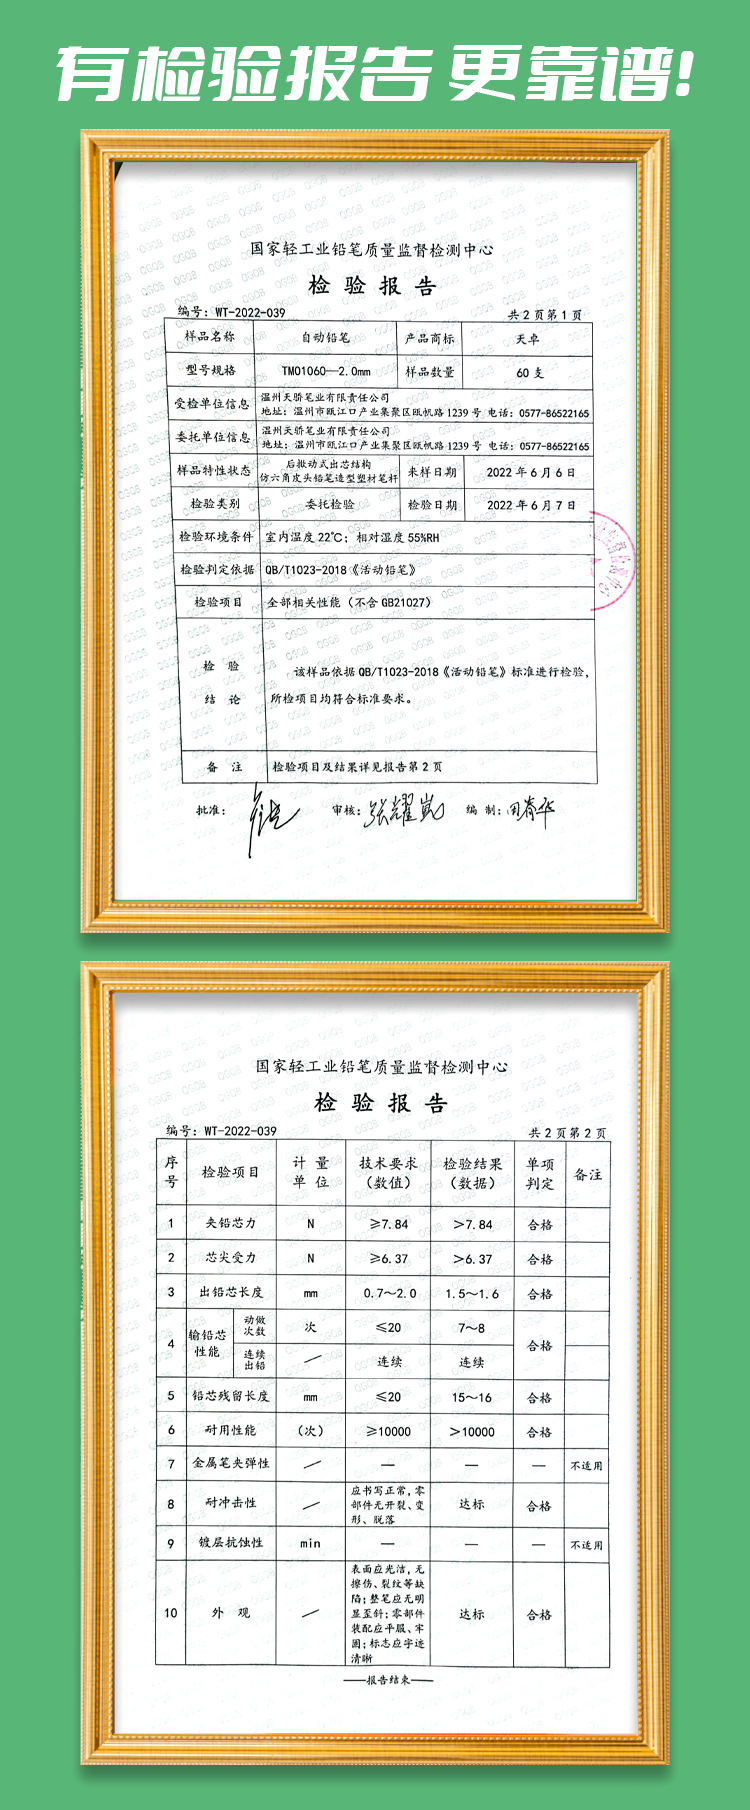 有检验报告 更靠谱!
国家轻工业铅笔质量监督检测中心
检 验 报 告
编号: WT-2022-039 共 2 页第 1 页
样品名称 自动铅笔 产品商标 天卓
型号规格 TM01060—2.0mm 样品数量 60 支
受检单位信息 温州天骄笔业有限责任公司
地址: 温州市瓯江口产业集聚区瓯帆路 1239 号 电话: 0577-86522165
委托单位信息 温州天骄笔业有限责任公司
地址: 温州市瓯江口产业集聚区瓯帆路 1239 号 电话: 0577-86522165
样品特性状态 后揿动式出芯结构
仿六角皮头铅笔造型塑材笔杆 来样日期 2022 年 6 月 6 日
检验类别 委托检验 检验日期 2022 年 6 月 7 日
检验环境条件 室内温度 22℃; 相对湿度 55%RH
检验判定依据 QB/T1023-2018《活动铅笔》
检验项目 全部相关性能 (不含 GB21027)
检 验
结 论
该样品依据 QB/T1023-2018《活动铅笔》标准进行检验,
所检项目均符合标准要求。
备 注 检验项目及结果详见报告第 2 页
批准: 审核: 张耀岚 编 制: 田春华
国家轻工业铅笔质量监督检测中心
检 验 报 告
编号: WT-2022-039 共 2 页第 2 页
序号 检验项目 计 量 单 位 技术要求 (数值) 检验结果 (数据) 单项判定 备注
1 夹铅芯力 N ≥7.84 >7.84 合格
2 芯尖受力 N ≥6.37 >6.37 合格
3 出铅芯长度 mm 0.7～2.0 1.5～1.6 合格
4 输铅芯性能 动做次数 次 ≤20 7～8 合格
连续出铅 / 连续 连续
5 铅芯残留长度 mm ≤20 15～16 合格
6 耐用性能 (次) ≥10000 >10000 合格
7 金属笔夹弹性 / — — — 不适用
8 耐冲击性 / 应书写正常, 零部件无开裂、变形、脱落 达标 合格
9 镀层抗蚀性 min — — — 不适用
10 外 观 / 表面应光洁, 无擦伤、裂纹等缺陷; 整笔应无明显歪斜; 零部件装配应平服、牢固; 标志应字迹清晰 达标 合格
——报告结束——